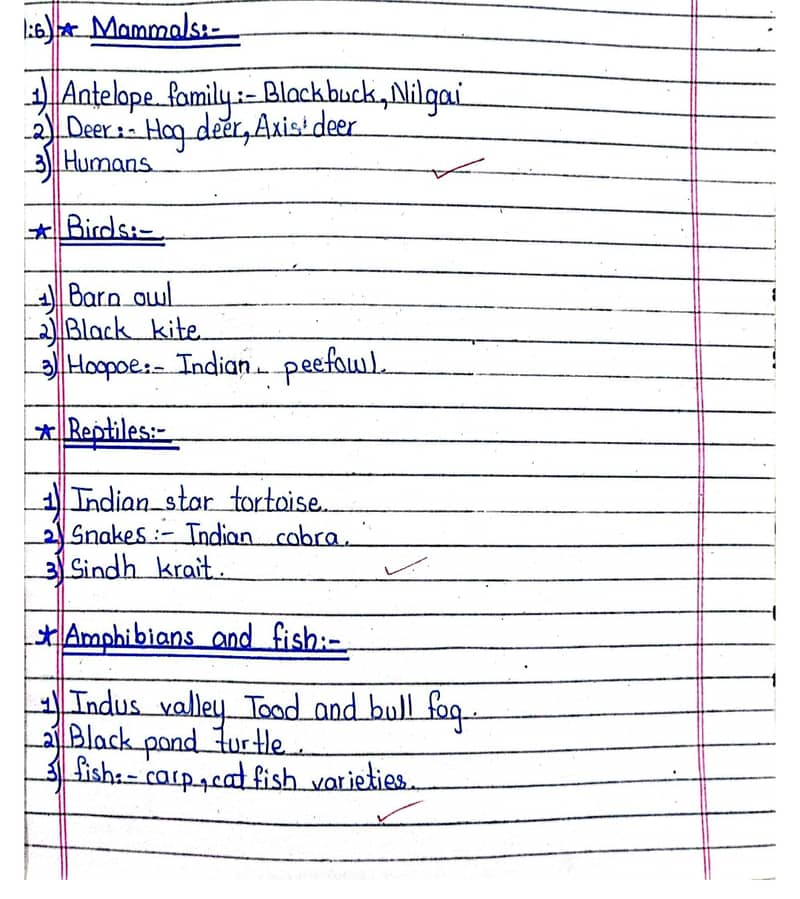 1:6) ★ Mammals:-
1) Antelope family:- Blackbuck, Nilgai
2) Deer:- Hog deer, Axis deer
3) Humans
★ Birds:-
1) Barn owl
2) Black kite
3) Hoopoe:- Indian peefowl.
★ Reptiles:-
1) Indian star tortoise.
2) Snakes:- Indian cobra.
3) Sindh krait.
★ Amphibians and fish:-
1) Indus valley Tood and bull fog.
2) Black pond turtle.
3) fish:- carp, cat fish varieties.